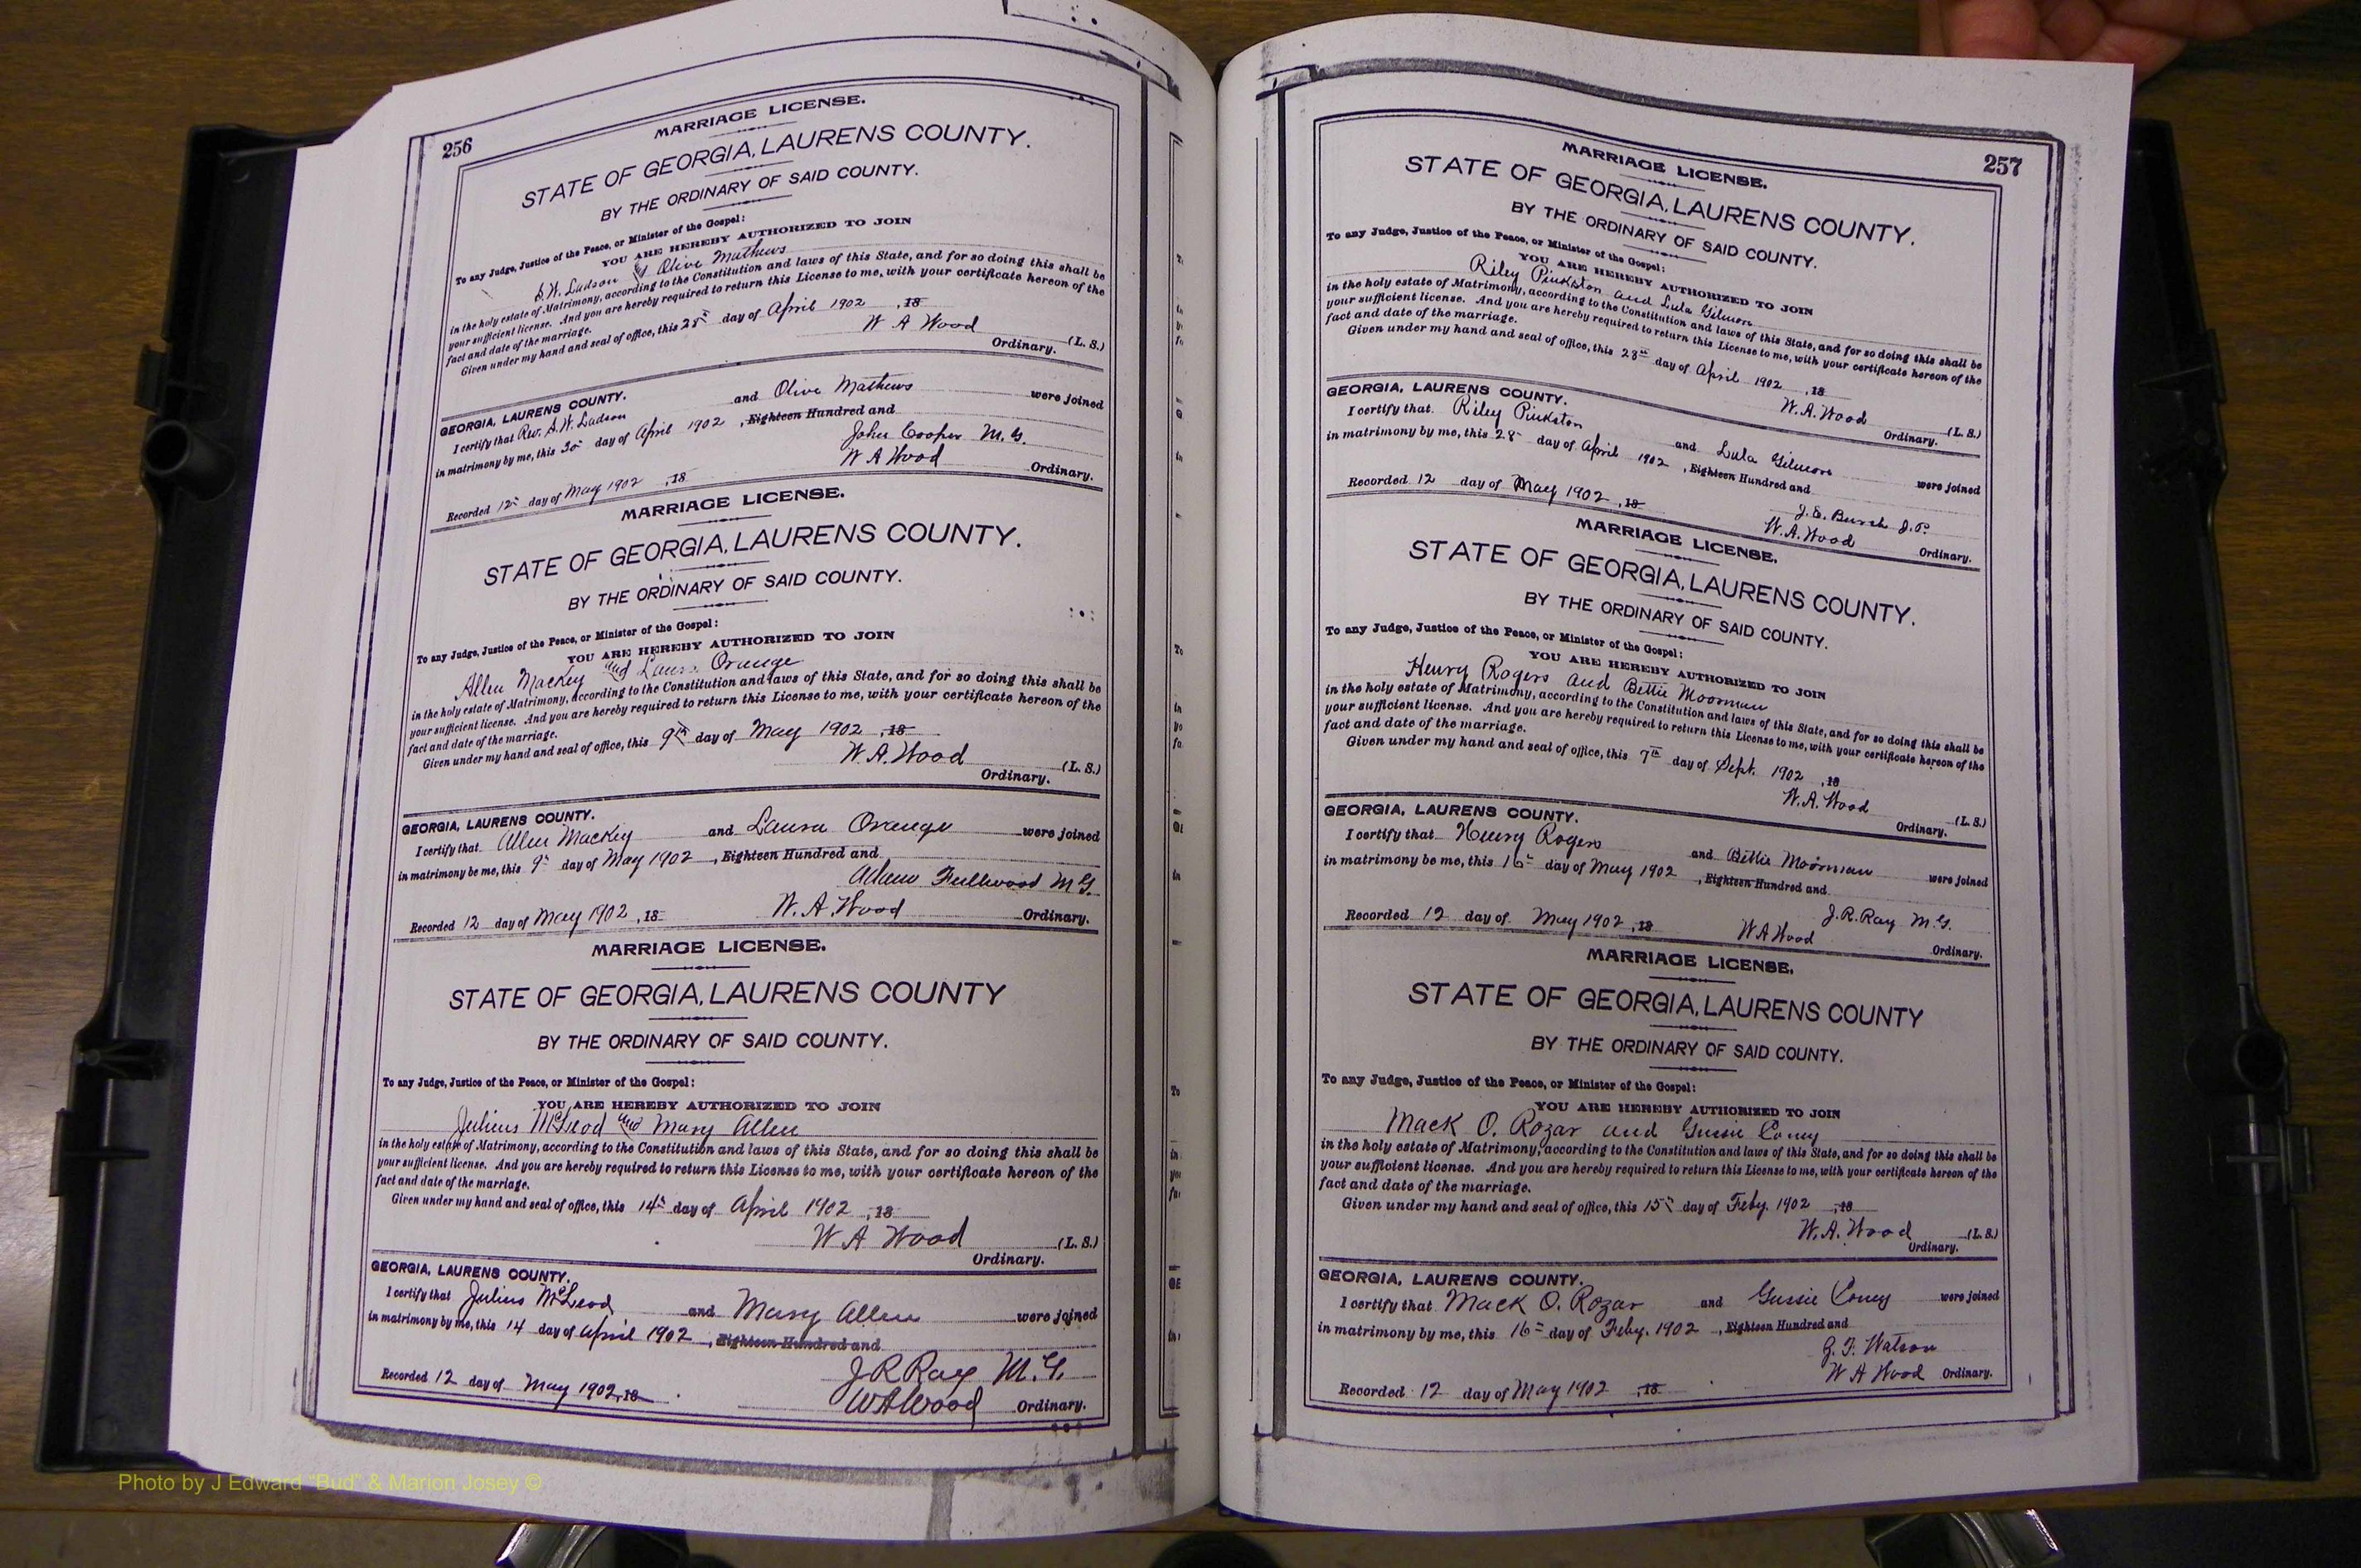 256
MARRIAGE LICENSE.
STATE OF GEORGIA, LAURENS COUNTY.
BY THE ORDINARY OF SAID COUNTY.
To any Judge, Justice of the Peace, or Minister of the Gospel:
YOU ARE HEREBY AUTHORIZED TO JOIN
S. W. Ludson & Olive Mathews
in the holy estate of Matrimony, according to the Constitution and laws of this State, and for so doing this shall be
your sufficient license. And you are hereby required to return this License to me, with your certificate hereon of the
fact and date of the marriage.
Given under my hand and seal of office, this 28 day of April 1902, 18
W A Wood (L. S.)
Ordinary.
GEORGIA, LAURENS COUNTY.
I certify that Rev. S. W. Ludson and Olive Mathews were joined
in matrimony by me, this 30 day of April 1902, Eighteen Hundred and
John Cooper M. G.
Recorded 12 day of May 1902, 18 W A Wood Ordinary.
MARRIAGE LICENSE.
STATE OF GEORGIA, LAURENS COUNTY.
BY THE ORDINARY OF SAID COUNTY.
To any Judge, Justice of the Peace, or Minister of the Gospel:
YOU ARE HEREBY AUTHORIZED TO JOIN
Allen Mackey and Laura Orange
in the holy estate of Matrimony, according to the Constitution and laws of this State, and for so doing this shall be
your sufficient license. And you are hereby required to return this License to me, with your certificate hereon of the
fact and date of the marriage.
Given under my hand and seal of office, this 9th day of May 1902, 18
W. A. Wood (L. S.)
Ordinary.
GEORGIA, LAURENS COUNTY.
I certify that Allen Mackey and Laura Orange were joined
in matrimony be me, this 9 day of May 1902, Eighteen Hundred and
Adam Fullwood M G.
Recorded 12 day of May 1902, 18 W. A. Wood Ordinary.
MARRIAGE LICENSE.
STATE OF GEORGIA, LAURENS COUNTY
BY THE ORDINARY OF SAID COUNTY.
To any Judge, Justice of the Peace, or Minister of the Gospel:
YOU ARE HEREBY AUTHORIZED TO JOIN
Julius McLeod and Mary Allen
in the holy estate of Matrimony, according to the Constitution and laws of this State, and for so doing this shall be
your sufficient license. And you are hereby required to return this License to me, with your certificate hereon of the
fact and date of the marriage.
Given under my hand and seal of office, this 14 day of April 1902, 18
W A Wood (L. S.)
Ordinary.
GEORGIA, LAURENS COUNTY.
I certify that Julius McLeod and Mary Allen were joined
in matrimony by me, this 14 day of April 1902, Eighteen Hundred and
J R Ray M. G.
Recorded 12 day of May 1902, 18 W A Wood Ordinary.
257
MARRIAGE LICENSE.
STATE OF GEORGIA, LAURENS COUNTY.
BY THE ORDINARY OF SAID COUNTY.
To any Judge, Justice of the Peace, or Minister of the Gospel:
YOU ARE HEREBY AUTHORIZED TO JOIN
Riley Pinkston and Lula Gilmore
in the holy estate of Matrimony, according to the Constitution and laws of this State, and for so doing this shall be
your sufficient license. And you are hereby required to return this License to me, with your certificate hereon of the
fact and date of the marriage.
Given under my hand and seal of office, this 28 day of April 1902, 18
W. A. Wood (L. S.)
Ordinary.
GEORGIA, LAURENS COUNTY.
I certify that Riley Pinkston and Lula Gilmore were joined
in matrimony by me, this 28 day of April 1902, Eighteen Hundred and
J. E. Burch J. P.
Recorded 12 day of May 1902, 18 W. A. Wood Ordinary.
MARRIAGE LICENSE.
STATE OF GEORGIA, LAURENS COUNTY.
BY THE ORDINARY OF SAID COUNTY.
To any Judge, Justice of the Peace, or Minister of the Gospel:
YOU ARE HEREBY AUTHORIZED TO JOIN
Henry Rogers and Bettie Moorman
in the holy estate of Matrimony, according to the Constitution and laws of this State, and for so doing this shall be
your sufficient license. And you are hereby required to return this License to me, with your certificate hereon of the
fact and date of the marriage.
Given under my hand and seal of office, this 7th day of Sept. 1902, 18
W. A. Wood (L. S.)
Ordinary.
GEORGIA, LAURENS COUNTY.
I certify that Henry Rogers and Bettie Moorman were joined
in matrimony be me, this 16 day of May 1902, Eighteen Hundred and
J. R. Ray M. G.
Recorded 12 day of May 1902, 18 W A Wood Ordinary.
MARRIAGE LICENSE.
STATE OF GEORGIA, LAURENS COUNTY
BY THE ORDINARY OF SAID COUNTY.
To any Judge, Justice of the Peace, or Minister of the Gospel:
YOU ARE HEREBY AUTHORIZED TO JOIN
Mack O. Rozar and Gussie Coney
in the holy estate of Matrimony, according to the Constitution and laws of this State, and for so doing this shall be
your sufficient license. And you are hereby required to return this License to me, with your certificate hereon of the
fact and date of the marriage.
Given under my hand and seal of office, this 15 day of Feby. 1902, 18
W. A. Wood (L. S.)
Ordinary.
GEORGIA, LAURENS COUNTY.
I certify that Mack O. Rozar and Gussie Coney were joined
in matrimony by me, this 16 day of Feby. 1902, Eighteen Hundred and
G. F. Watson
Recorded 12 day of May 1902, 18 W A Wood Ordinary.
Photo by J Edward "Bud" & Marion Josey ©